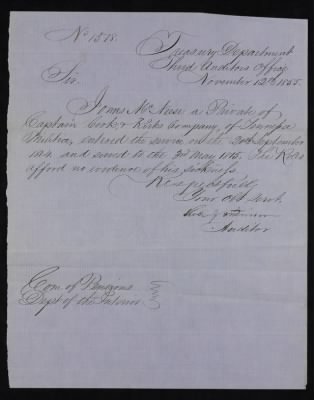 No. 1578.
Treasury Department
Third Auditors Office
November 12th 1855.
Sir.
a Private of
Captain Kirks Company, of Tennessee
Militia, entered the service on the 20th September
1814. and served to the 3rd May 1815. The Rolls
afford no evidence of his sickness
Respectfully
Your Obt Servt.
Auditor
Com. of Pensions
Dept of the Interior